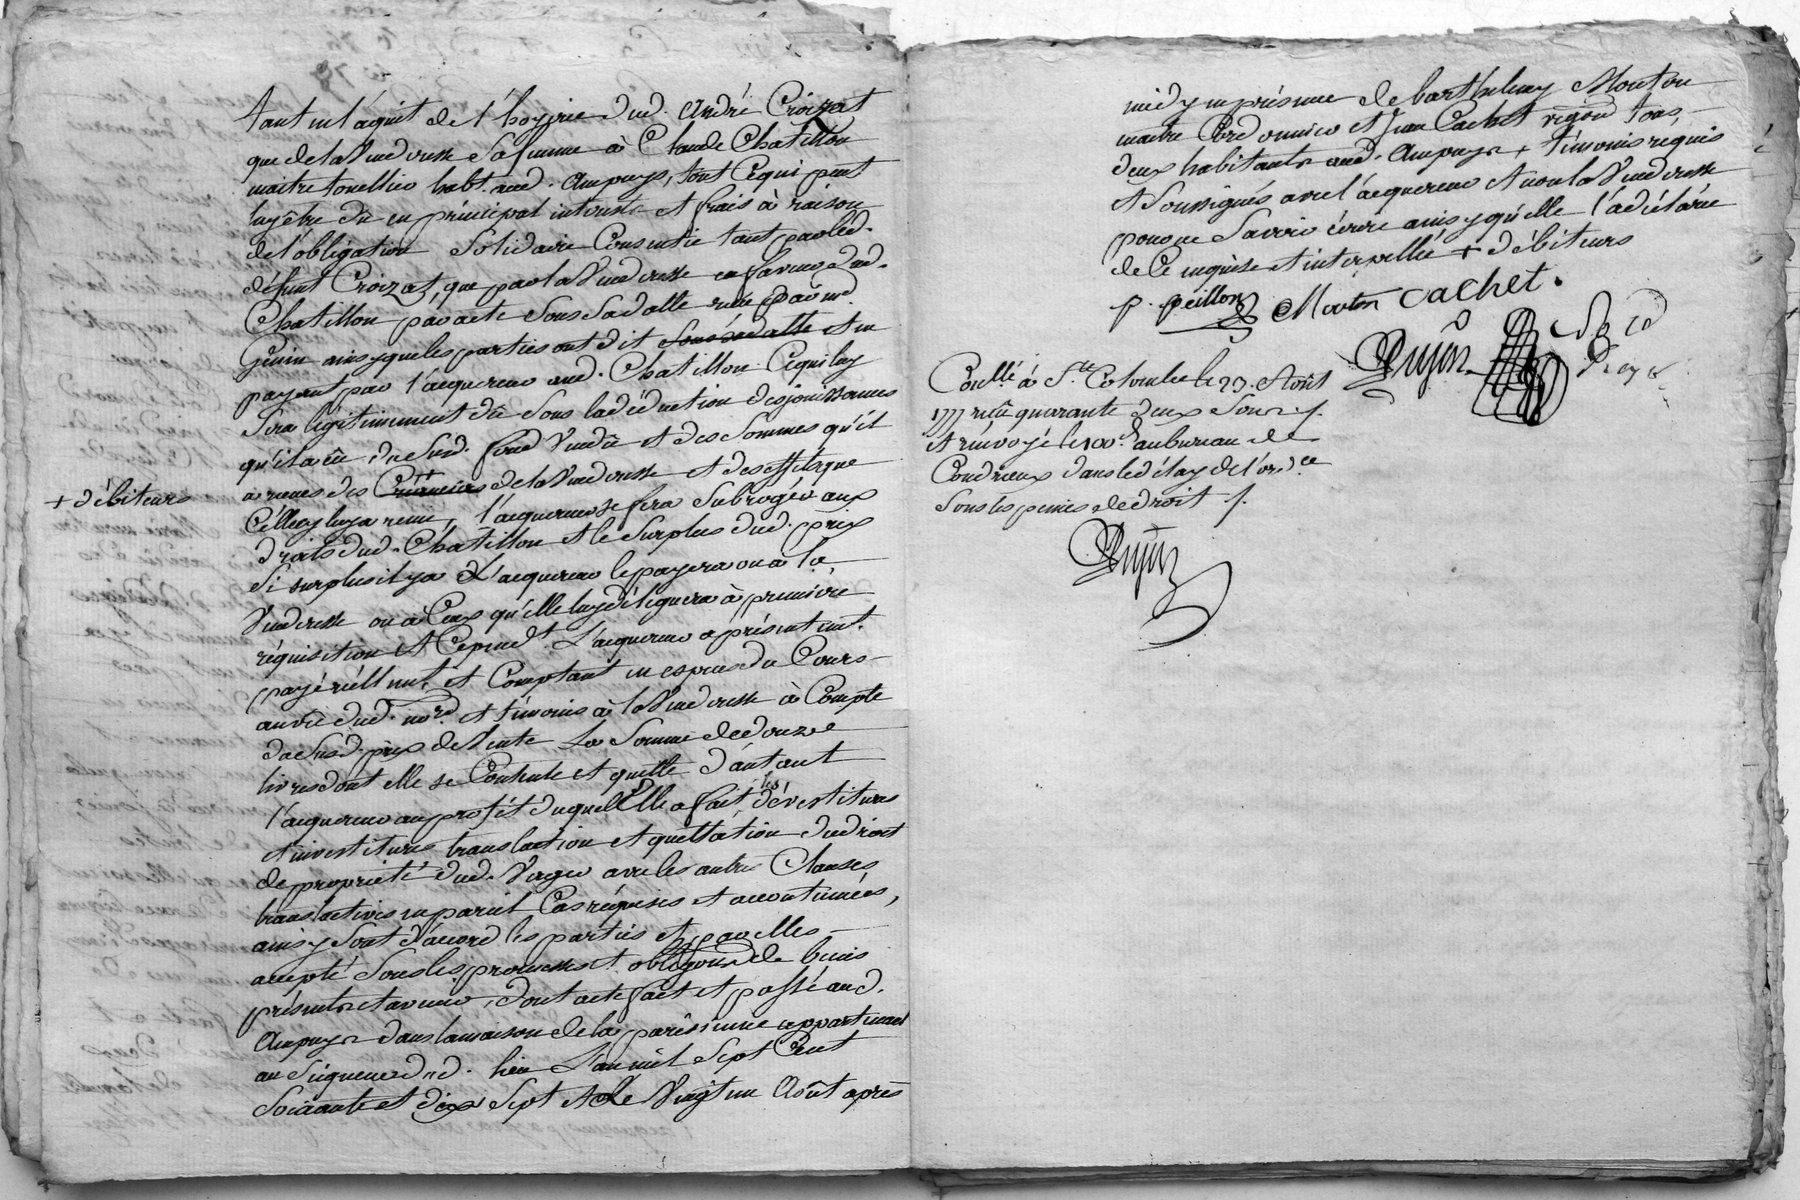 tant en l'aquit de l'hoyrie dud. André Croizat
que de la Venderesse sa femme à Claude Chatillon
maitre tonellier habt. aud. Ampuys, tout Ce qui peut
luy être dû en principal interests et frais à raison
de l'obligation Solidaire Consentie tant par led.
défunt Croizat, que par la Venderesse en faveur dud.
Chatillon par acte Sous Sa datte reçu par me.
Genin ainsy que les parties ont dit Sous sa datte et en
payant par l'acquereur aud. Chatillon Ce qui luy
Sera légitimement dû Sous la déduction des jouissances
qu'il a eû du Susd. fond Vendû et des Sommes qu'il
a reçues des Créanciers + de la Venderesse et des effets que
+ débiteurs
Celle cy luy a remi, l'acquereur se fera Subrogér aux
droits dud. Chatillon et le Surplus dud. prix
Si surplus il y a L'acquereur le payera ou à la
Venderesse ou à Ceux qu'elle luy déleguera à premiere
réquisition et Cepend.t L'acquereur a présentemt.
payé réellemt. et Comptant en espèces du Cours
au vû dud. no.re et témoins à la Venderesse à Compte
du Susd. prix de Vente La Somme de douze
livres dont elle se Contente et quitte d'autant
l'acquereur au profit duquel Elle a fait les dévestitures
et investitures translaction et quettation du droit
de propriété dud. Verger avec les autres Clauses
translactives en pareil Cas réquises et accoutumées,
ainsy Sont d'accord les parties et par elles
accepté Sous les promesses et obligaõns de biens
présents et avenir, dont acte fait et passé aud.
Ampuys dans la maison de la parèsienne appartenant
au Seigneur dud. lieu L'an mil Sept Cent
Soixante et dix Sept et le Vingt un Août après
midy en présence de barthelemy Mouton
maitre Cordonnier et Jean Cachet vigñon tous
deux habitants aud. Ampuys témoins requis
et Soussignés avec l'acquereur et non la Venderesse
pour ne Savoir écrire ainsy qu'elle l'a déclaré
de Ce enquise et interpellée + débiteurs
p. peillon Mouton Cachet.
Dujon
Conllé à Ste Colombe le 23. Août
1777 reçû quarante deux Sous
et renvoyé le 100e. au bureau de
Condrieux dans le délay de l'ord.ce
Sous les peines de droit
Dujon